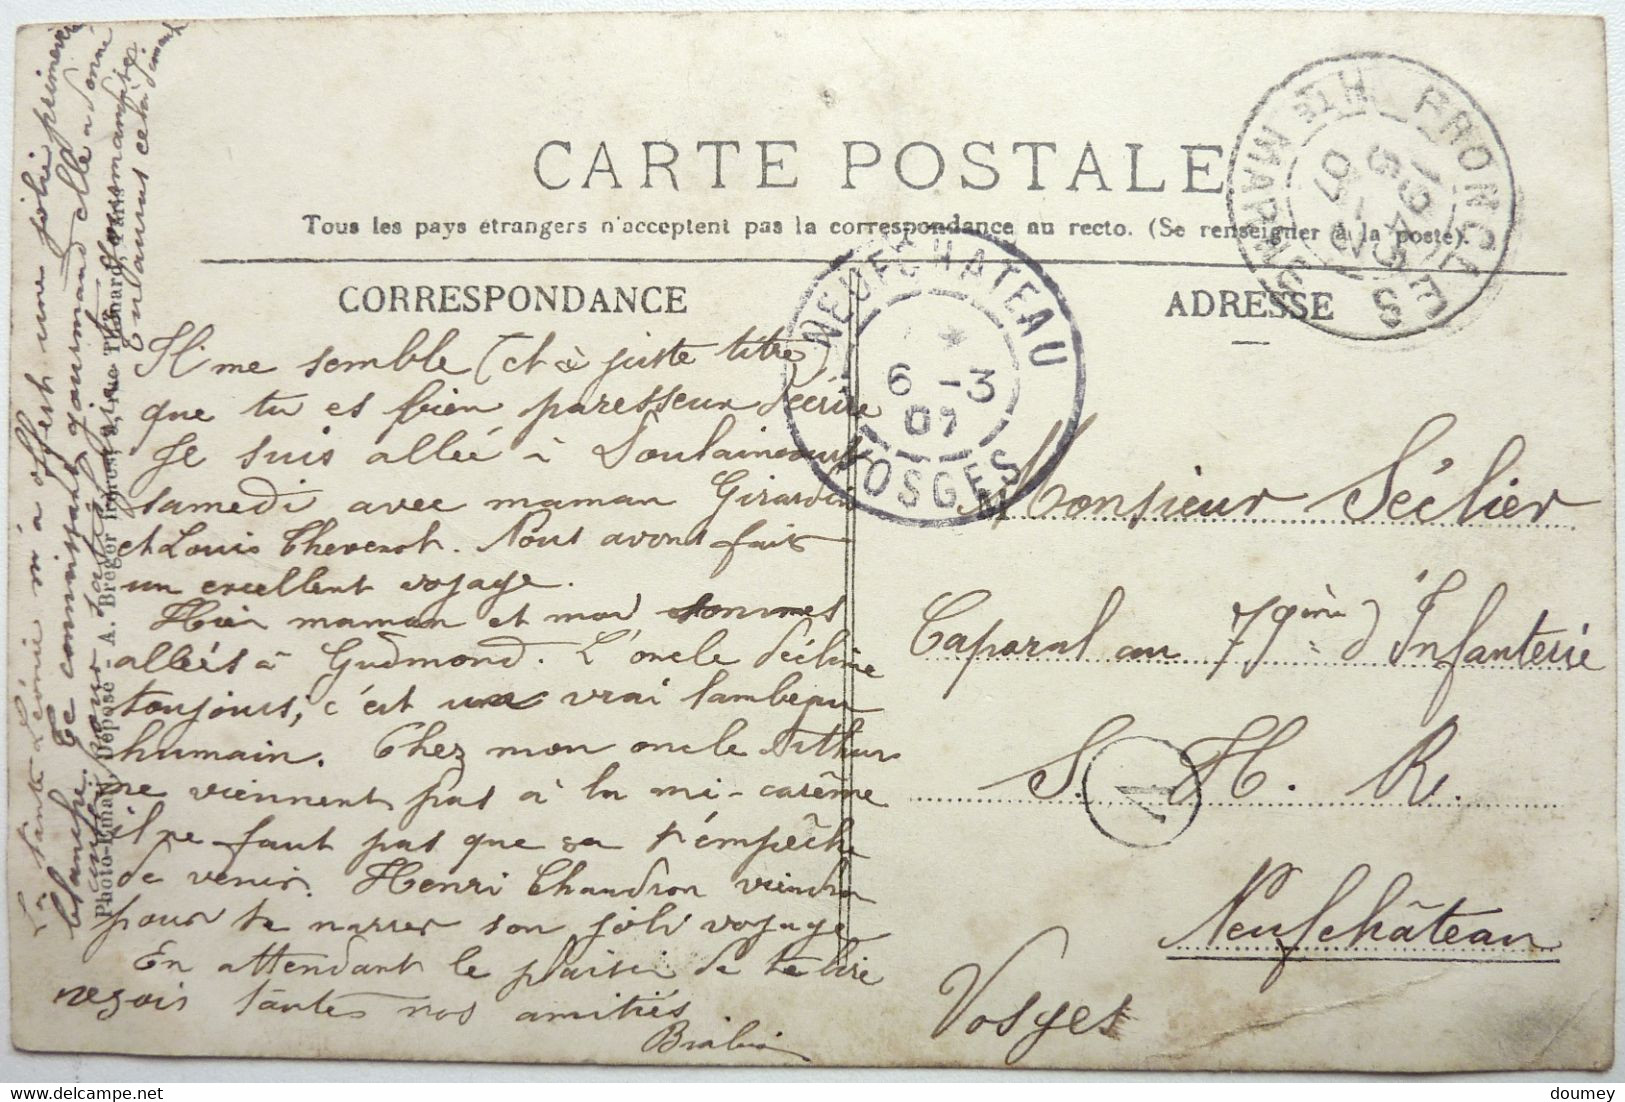 CARTE POSTALE
Tous les pays étrangers n'acceptent pas la correspondance au recto. (Se renseigner à la poste).
CORRESPONDANCE
ADRESSE
FRONCLES
HTE MARNE
5 07
NEUFCHATEAU
6 -3
07
VOSGES
Il me semble (et à juste titre)
que tu es bien paresseux d'écrire
Je suis allée à Doulaincourt
samedi avec maman Girardin
et Louis Thevenot. Nous avons fait
un excellent voyage.
Hier maman et moi sommes
allées à Gudmond. L'oncle décline
toujours, c'est un vrai lambeau
humain. Chez mon oncle Arthur
ne viennent pas à la mi-carême
il ne faut pas que sa t'empêche
de venir. Henri Chaudron viendra
pour te narrer son joli voyage
En attendant le plaisir de te lire
reçois tantes nos amitiés
La tante Léonie m'a offert une jolie primevère
blanche. Te connaissant gourmand elle a donné
Tu auras cela dimanche
Photo-Email, Déposé - A. Bréger Imprim, 9, rue Thénard, Paris
Monsieur Séclier
Caporal au 79ème d'Infanterie
S. H. R.
1
Neufchâteau
Vosges
doumey